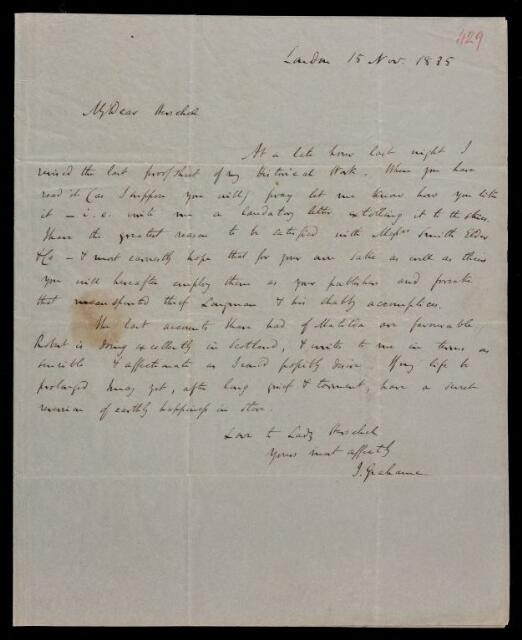 429
London 15 Nov. 1835
My Dear Herschel
At a late hour last night I
revised the last proof sheet of my historical Work. When you have
read it (as I suppose you will) pray let me know how you like
it – i.e. write me a laudatory letter extolling it to the skies.
I have the greatest reason to be satisfied with Messrs Smith Elder
& Co – & most earnestly hope that for your own sake as well as theirs
you will hereafter employ them as your publishers and forsake
that mean spirited thief Longman & his shabby accomplices.
The last accounts I have had of Matilda are favourable;
Robert is doing excellently in Scotland, & writes to me in terms as
sensible & affectionate as I could possibly desire. If my life be
prolonged I may yet, after long grief & torment, have a sweet
of earthly happiness in store.
Love to Lady Herschel
Yours most affectly
J. Grahame